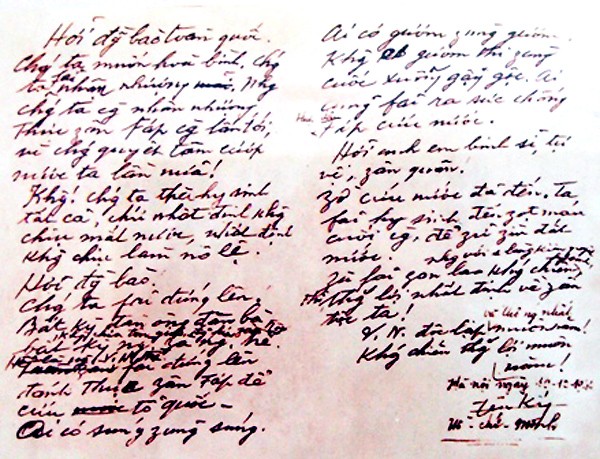 Hỡi đg bào toàn quốc.
Chg' ta muốn hoà bình, chg'
ta fải nhân nhượng. Nhg
chg' ta cg nhân nhượng
thực zân Fáp cg lấn tới,
vì chg' quyết tâm cướp
nước ta lần nữa!
Khg! chg' ta thà hy sinh
tất cả, chứ nhất định khg
chịu mất nước, nhất định
khg chịu làm nô lệ.
Hỡi đg bào!
Chg' ta fải đứng lên!
Bất kỳ đàn ông, đàn bà,
bất kỳ ng' zà, ng' trẻ.
fải đứng lên
đánh thực zân Fáp để
cứu tổ quốc –
Ai có súng zùng súng.
Ai có gươm zùng gươm.
Khg có gươm thì zùng
cuốc xuổng gậy gộc. Ai
cũng fải ra sức chống
Fáp cứu nước.
Hỡi anh em binh sĩ, tự
vệ, zân quân!
Zờ cứu nước đã đến. Ta
fải hy sinh đến zọt máu
cuối cg, để zữ zìn đất
nước.
Zù fải gan lao khg' chiến,
thắng lợi nhất định về zân
tộc ta!
V.N. độc lập và thống nhất muôn năm!
Khg' chiến thắng lợi muôn
năm!
Hà nội ngày 19-12-46
Hồ - chí - minh